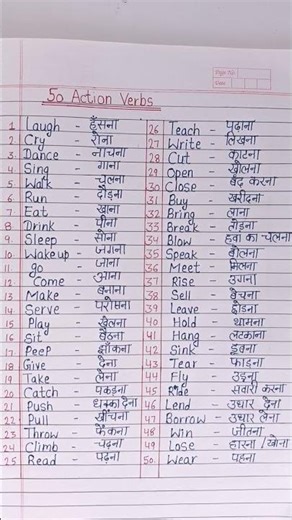 Page No.
Date
50 Action Verbs
1 Laugh - हँसना
2 Cry - रोना
3 Dance - नाचना
4 Sing - गाना
5 Walk - चलना
6 Run - दौड़ना
7 Eat - खाना
8 Drink - पीना
9 Sleep - सोना
10 Wakeup - जगना
11 go - जाना
12 Come - आना
13 Make - बनाना
14 Serve - परोसना
15 Play - खेलना
16 Sit - बैठना
17 Peep - झाँकना
18 Give - देना
19 Take - लेना
20 Catch - पकड़ना
21 Push - धक्का देना
22 Pull - खींचना
23 Throw - फेंकना
24 Climb - चढ़ना
25 Read - पढ़ना
26 Teach - पढ़ाना
27 Write - लिखना
28 Cut - काटना
29 Open - खोलना
30 Close - बंद करना
31 Buy - खरीदना
32 Bring - लाना
33 Break - तोड़ना
34 Blow - हवा का चलना
35 Speak - बोलना
36 Meet - मिलना
37 Rise - उगना
38 Sell - बेचना
39 Leave - छोड़ना
40 Hold - थामना
41 Hang - लटकाना
42 Sink - डूबना
43 Tear - फाड़ना
44 Fly - उड़ना
45 Ride - सवारी करना
46 Lend - उधार देना
47 Borrow - उधार लेना
48 Win - जीतना
49 Lose - हारना / खोना
50. Wear - पहना